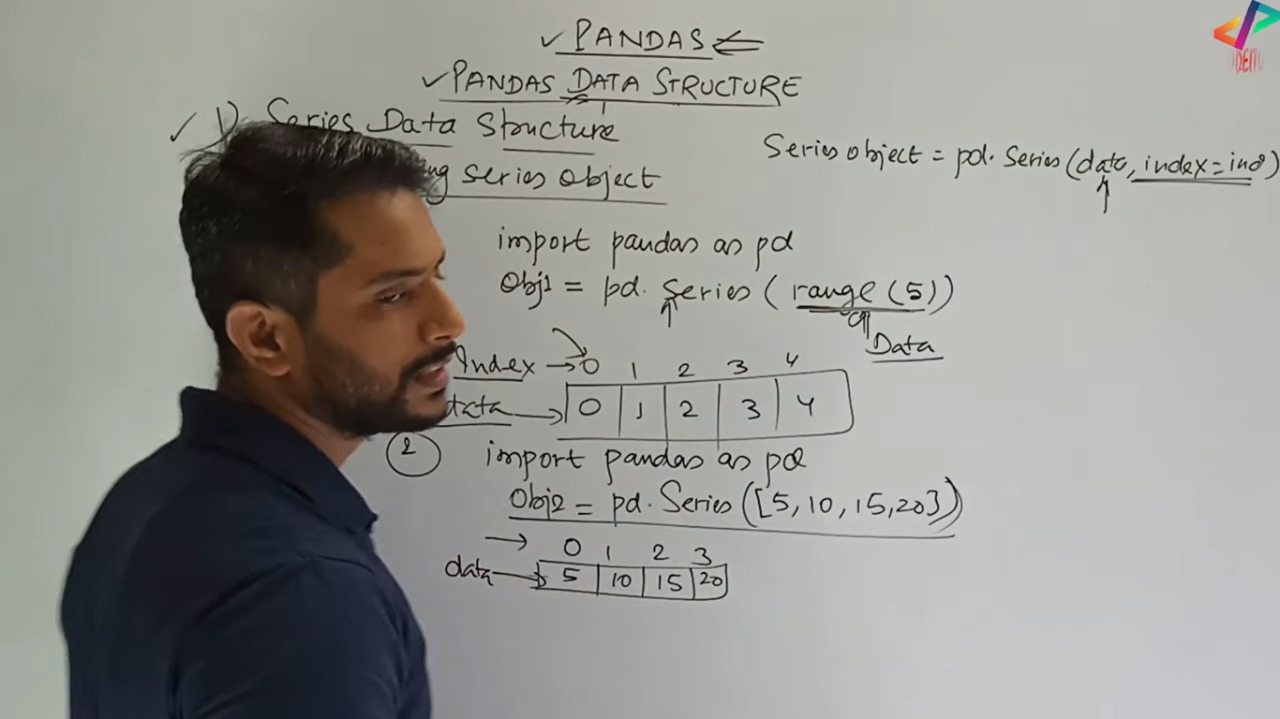 PANDAS
PANDAS DATA STRUCTURE
1) Series Data Structure
series object
Series object = pd. Series (data, index = ind)
import pandas as pd
Obj1 = pd. Series ( range (5))
Data
Index → 0 1 2 3 4
data → 0 1 2 3 4
2 import pandas as pd
Obj2 = pd. Series ([5, 10, 15, 20])
→ 0 1 2 3
data → 5 10 15 20